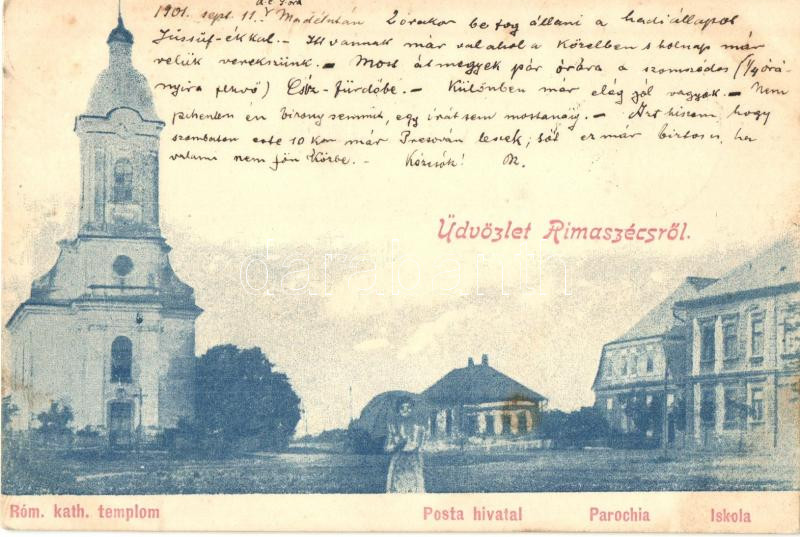 1901. sept. 11. Ma délután 2 órakor be fog állani a hadi állapot
Jüssüf-ékkal. - Itt vannak már valahol a közelben s holnap már
velük verekszünk. - Most átmegyek pár órára a szomszédos (1/4 órá-
nyira fekvő) Csíz-fürdőbe. - Különben már elég jól vagyok. - Nem
pihentem én bizony semmit, egy órát sem mostanáig. - Azt hiszem, hogy
szombaton este 10 kor már Presován leszek, sőt ez már biztos, ha
valami nem jön közbe. - Kézcsók!
Üdvözlet Rimaszécsről.
Róm. kath. templom
Posta hivatal
Parochia
Iskola